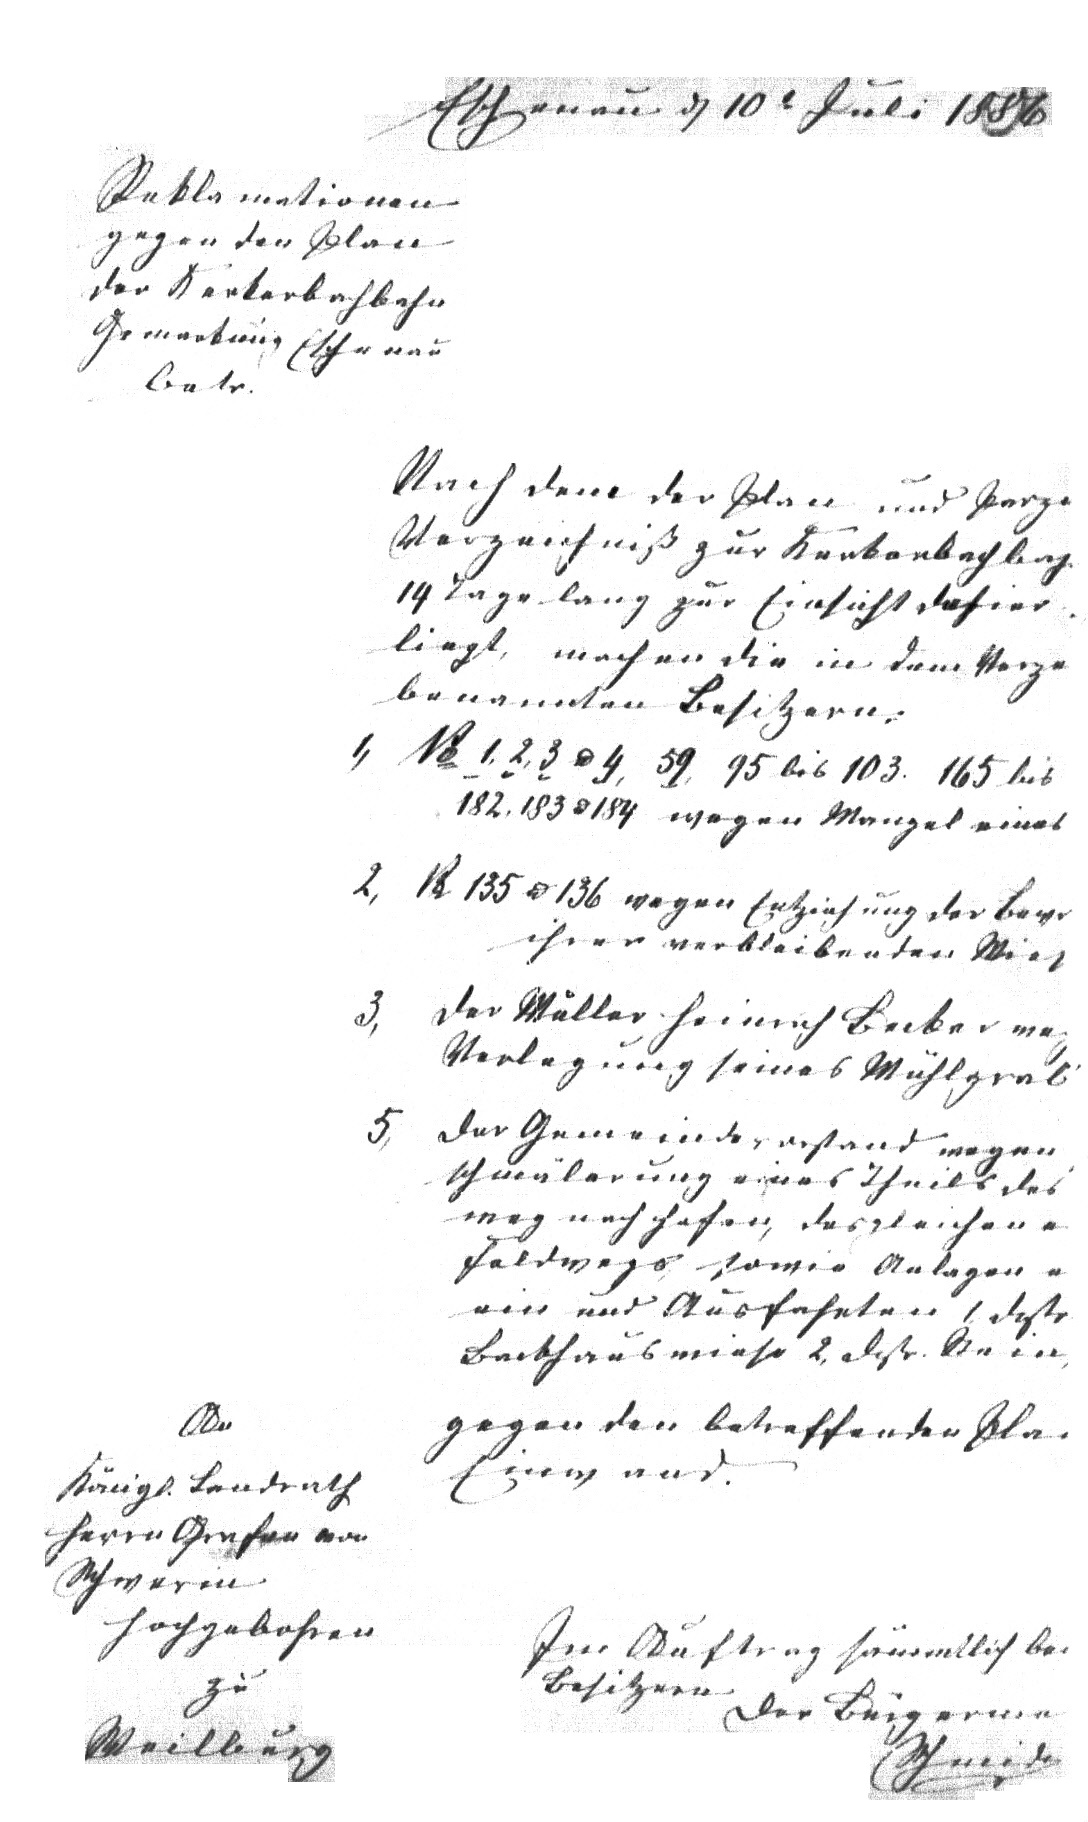 Eschenau d 10t Juli 1886
Reklamationen
gegen den Plan
der Kerkerbachbahn
Gemarkung Eschenau
betr.
Nach dem der Plan und Parze
Verzeichniß zur Kerkerbachbah
14 Tage lang zur Einsicht dahier
liegt, machen die in dem Verze
benannten Besitzern:
1, No 1, 2, 3 & 4, 59, 95 bis 103. 165 bis
182. 183 & 184 wegen Mangel eines
2, No 135 & 136 wegen Entziehung der Bew
ihrer verbleibenden Wies
3, der Müller Heinrich Becker we
Verlegung seines Mühlgrab
5, der Gemeindevorstand wegen
schmälerung eines Theils des
weg nach Hofen, desgleichen e
Feldwegs, sowie Anlagen e
ein und Ausfahrten 1, Distr
Backhauswiese 2, Distr. Stein
gegen den betreffenden Pla
Einwand.
An
Königl. Landrath
Herrn Grafen von
Schwerin
Hochgebohren
zu
Weilburg
Im Auftrag sämmtlich be
Besitzern
Der Bürgerme
Schneide